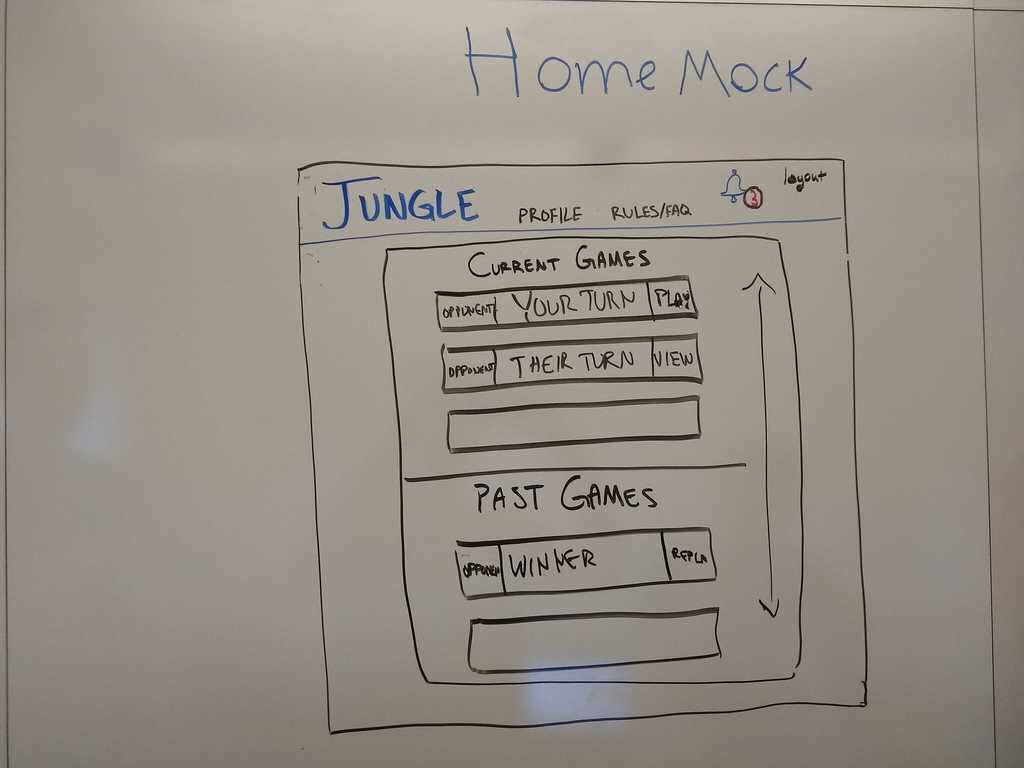 Home Mock
JUNGLE PROFILE RULES/FAQ 3 logout
CURRENT GAMES
OPPONENT YOUR TURN PLAY
OPPONENT THEIR TURN VIEW
PAST GAMES
OPPONEN WINNER REPLA